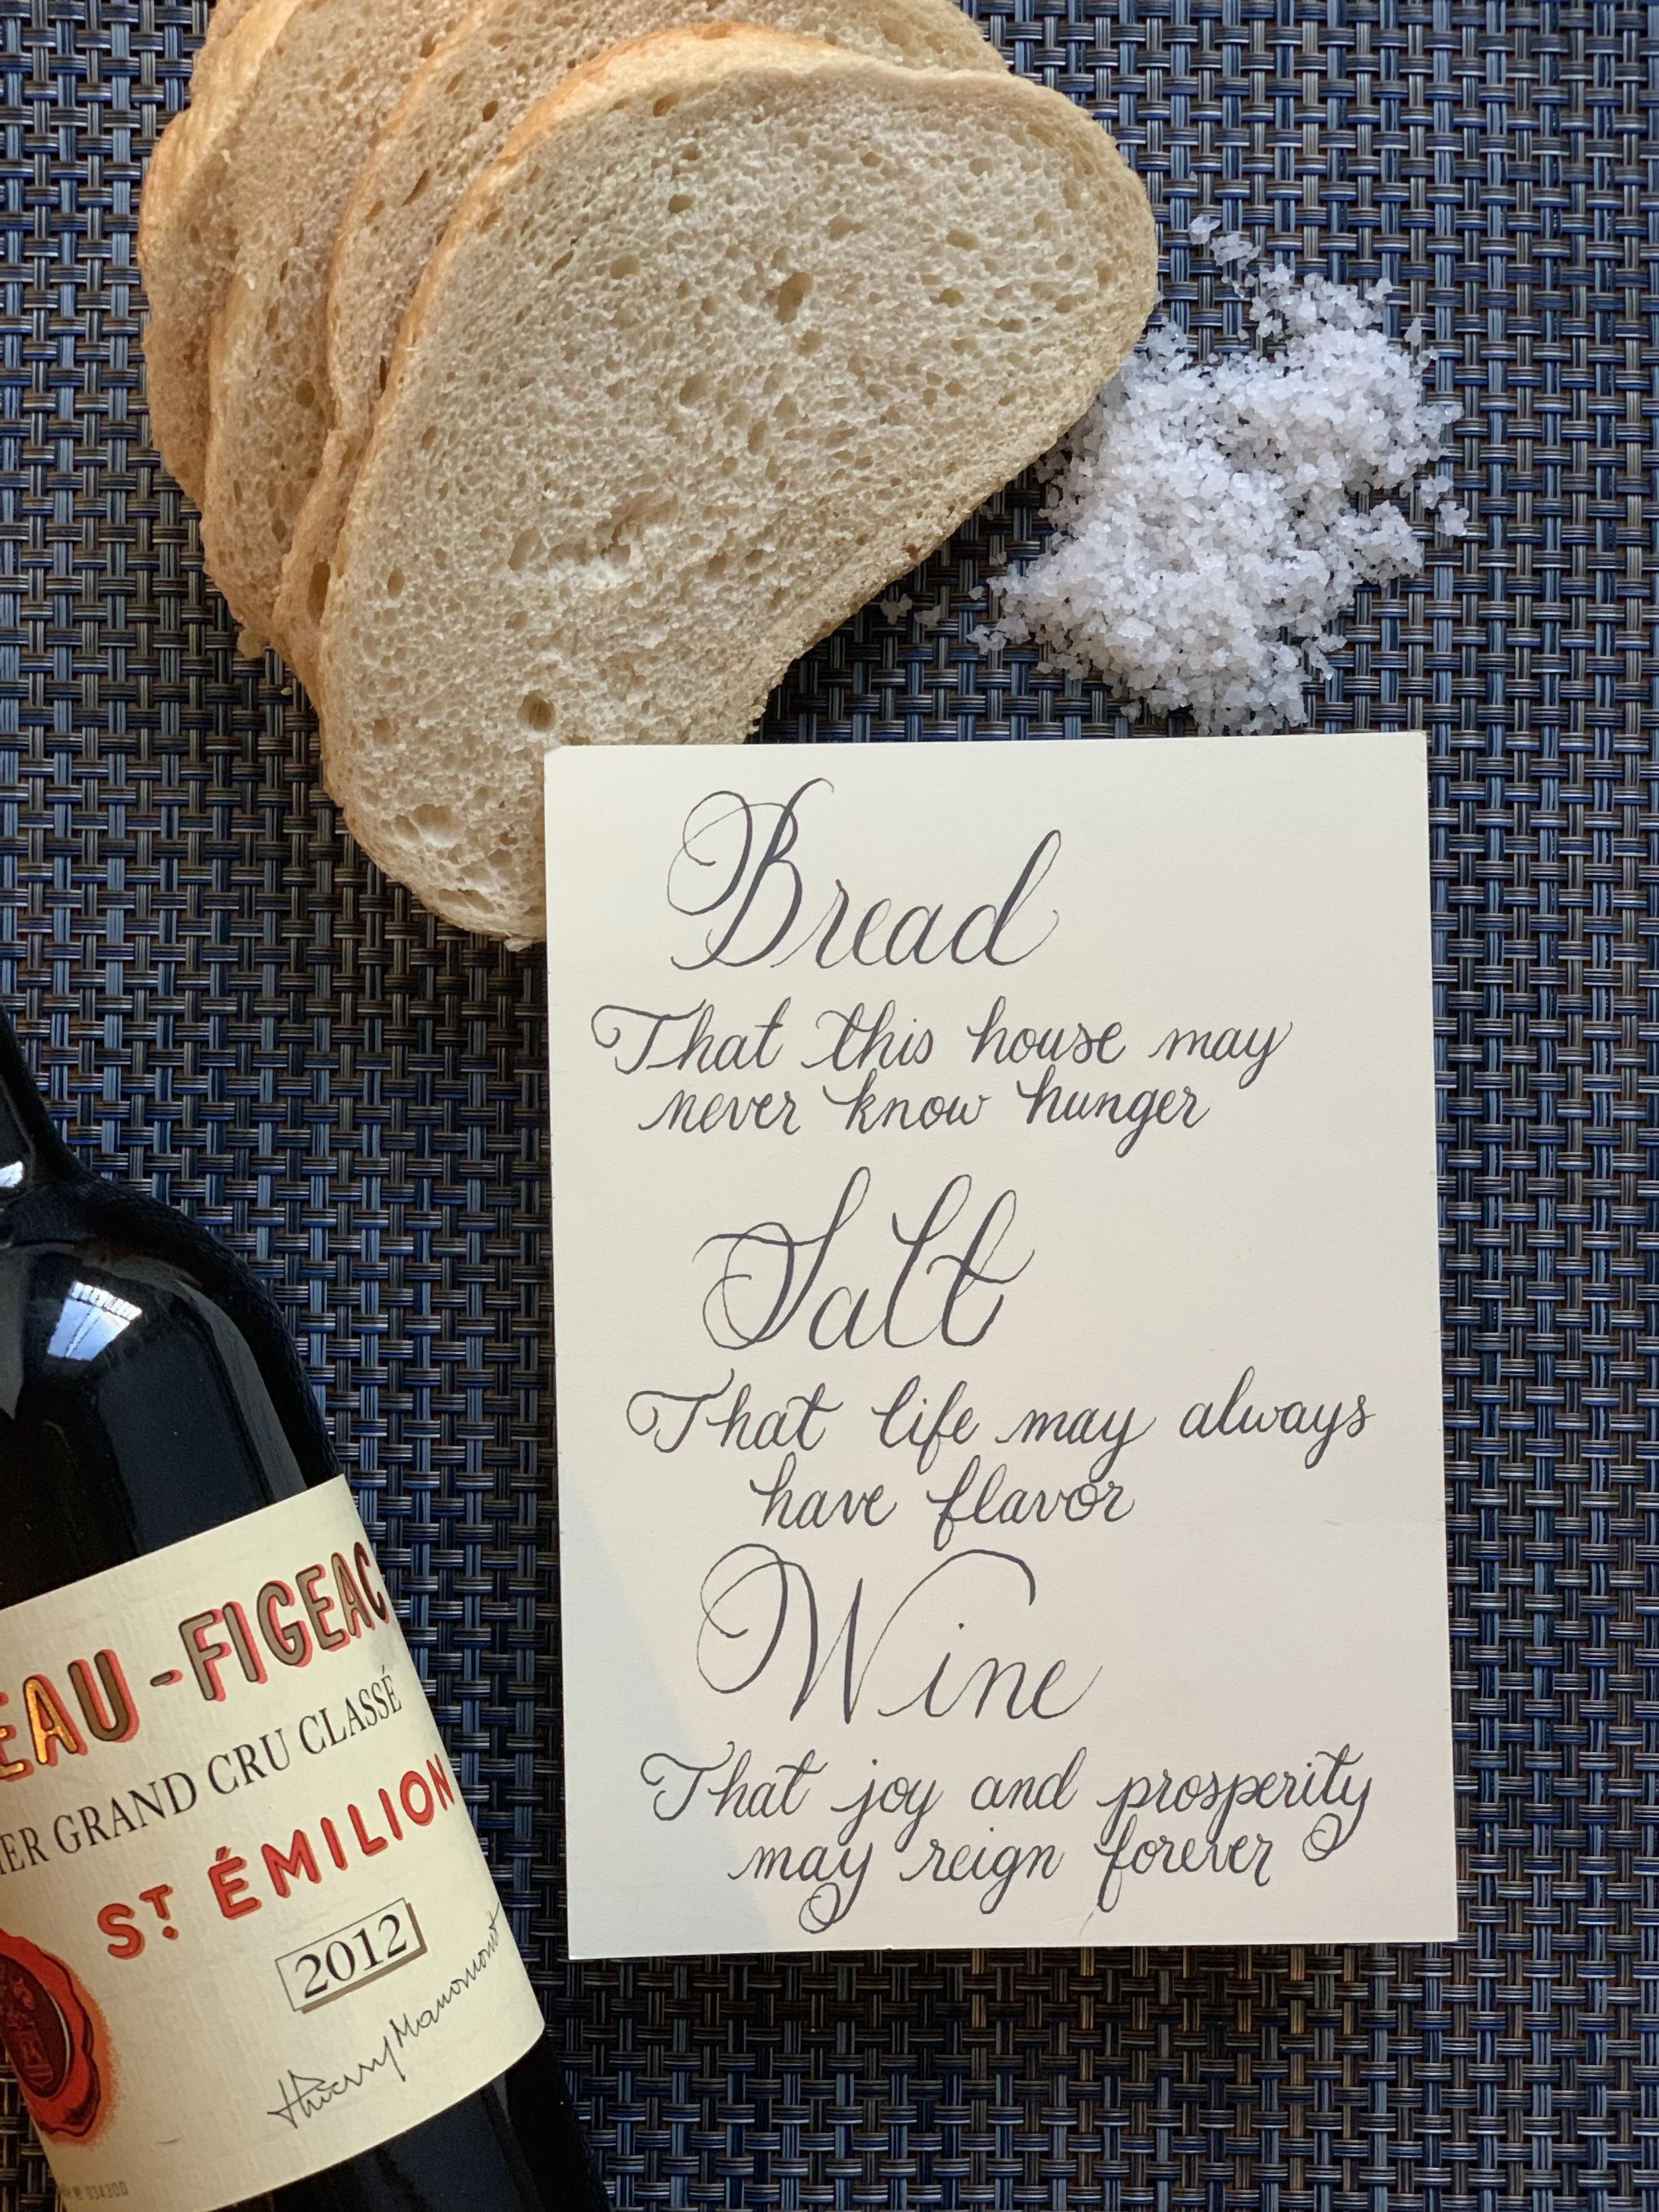 Bread
That this house may
never know hunger
Salt
That life may always
have flavor
Wine
That joy and prosperity
may reign forever
EAU-FIGEAC
ER GRAND CRU CLASSÉ
ST. ÉMILION
2012
Thierry Manoncourt